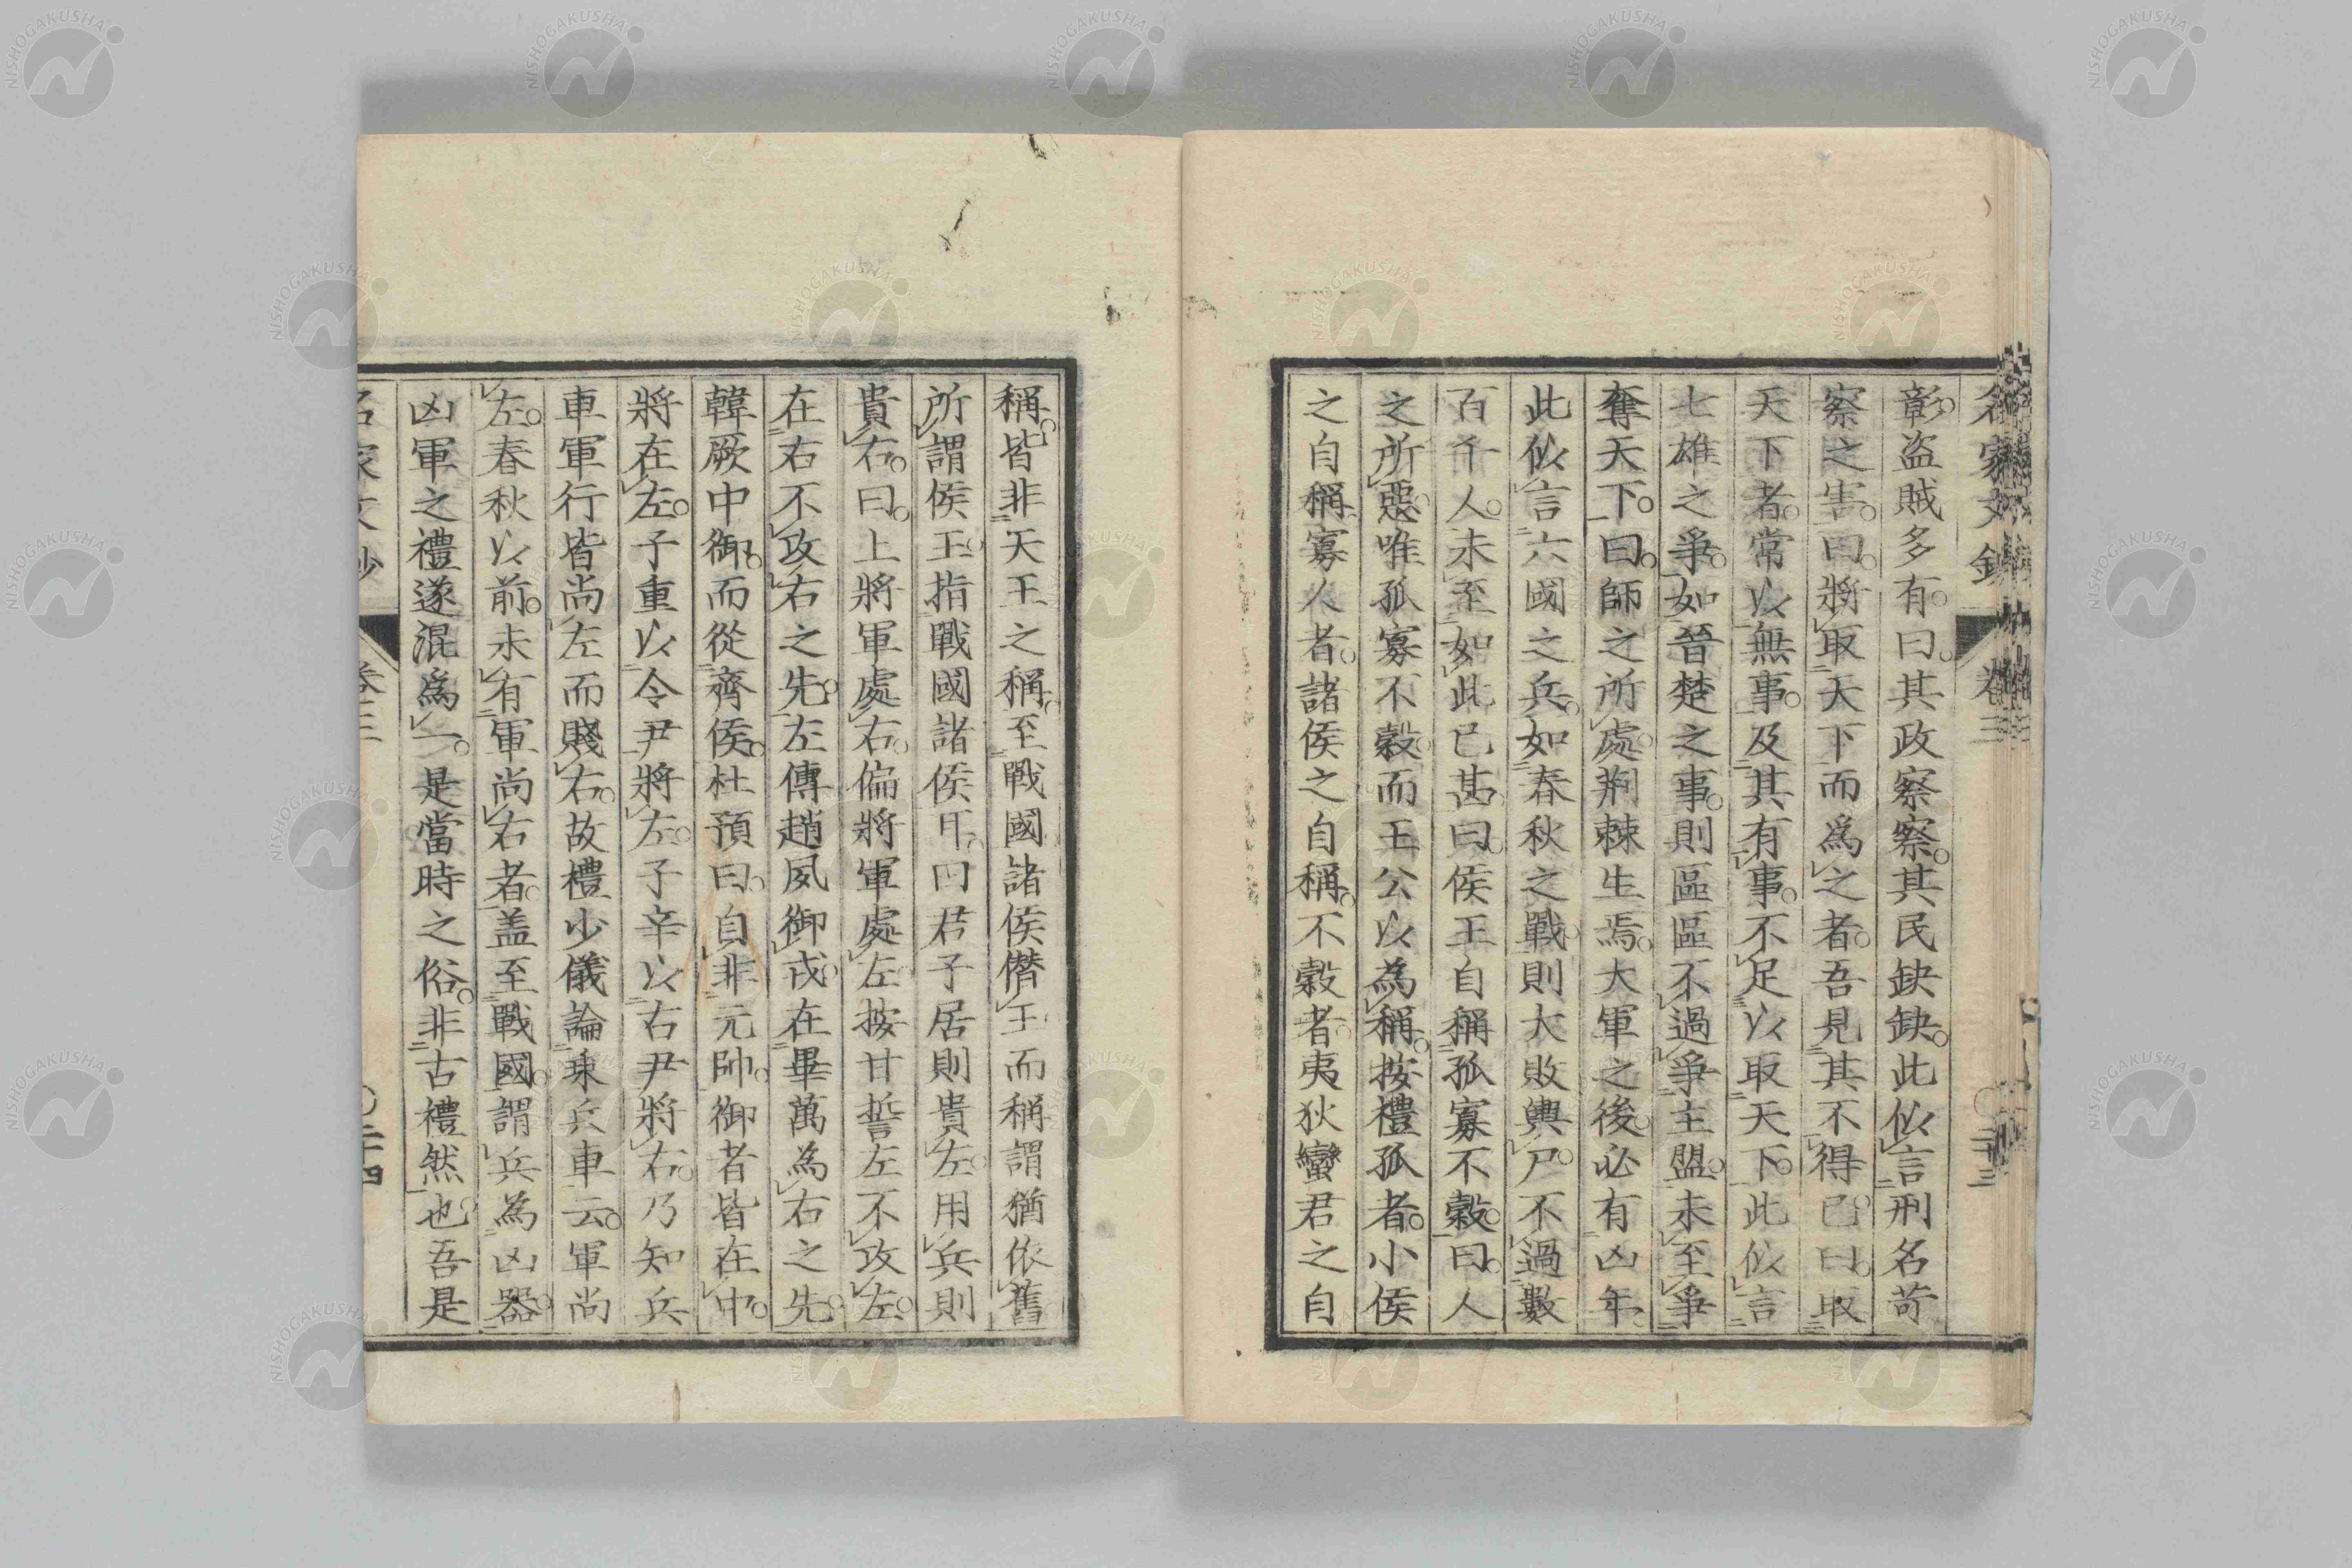 名家文鈔 卷三 〇二十三
彰。盜賊多有。曰。其政察察。其民缺缺。此似言刑名苛
察之害。曰。將取天下而爲之者。吾見其不得已。曰。取
天下者。常以無事。及其有事。不足以取天下。此似言
七雄之爭。如晉楚之事。則區區不過爭主盟。未至爭
奪天下。曰。師之所處。荆棘生焉。大軍之後。必有凶年。
此似言六國之兵。如春秋之戰。則大敗輿尸。不過數
百千人。未至如此已甚。曰。侯王自稱孤寡不穀。曰。人
之所惡。唯孤寡不穀。而王公以為稱。按禮孤者。小侯
之自稱。寡人者。諸侯之自稱。不穀者。夷狄蠻君之自
稱。皆非天王之稱。至戰國諸侯僭王而稱謂猶依舊
所謂侯王。指戰國諸侯耳。曰君子居則貴左。用兵則
貴右。曰。上將軍處右。偏將軍處左。按甘誓左不攻左。
在右不攻右之先。左傳趙夙御戎。在畢萬為右之先。
韓厥中御。而從齊侯。杜預曰。自非元帥。御者皆在中。
將在左。子重以令尹將左。子辛以右尹將右。乃知兵
車軍行皆尚左而賤右。故禮少儀論乘兵車云。軍尚
左。春秋以前。未有軍尚右者。盖至戰國。謂兵為凶器。
凶軍之禮遂混爲一。是當時之俗。非古禮然也。吾是
名家文鈔 卷三 〇二十四
NISHOGAKUSHA